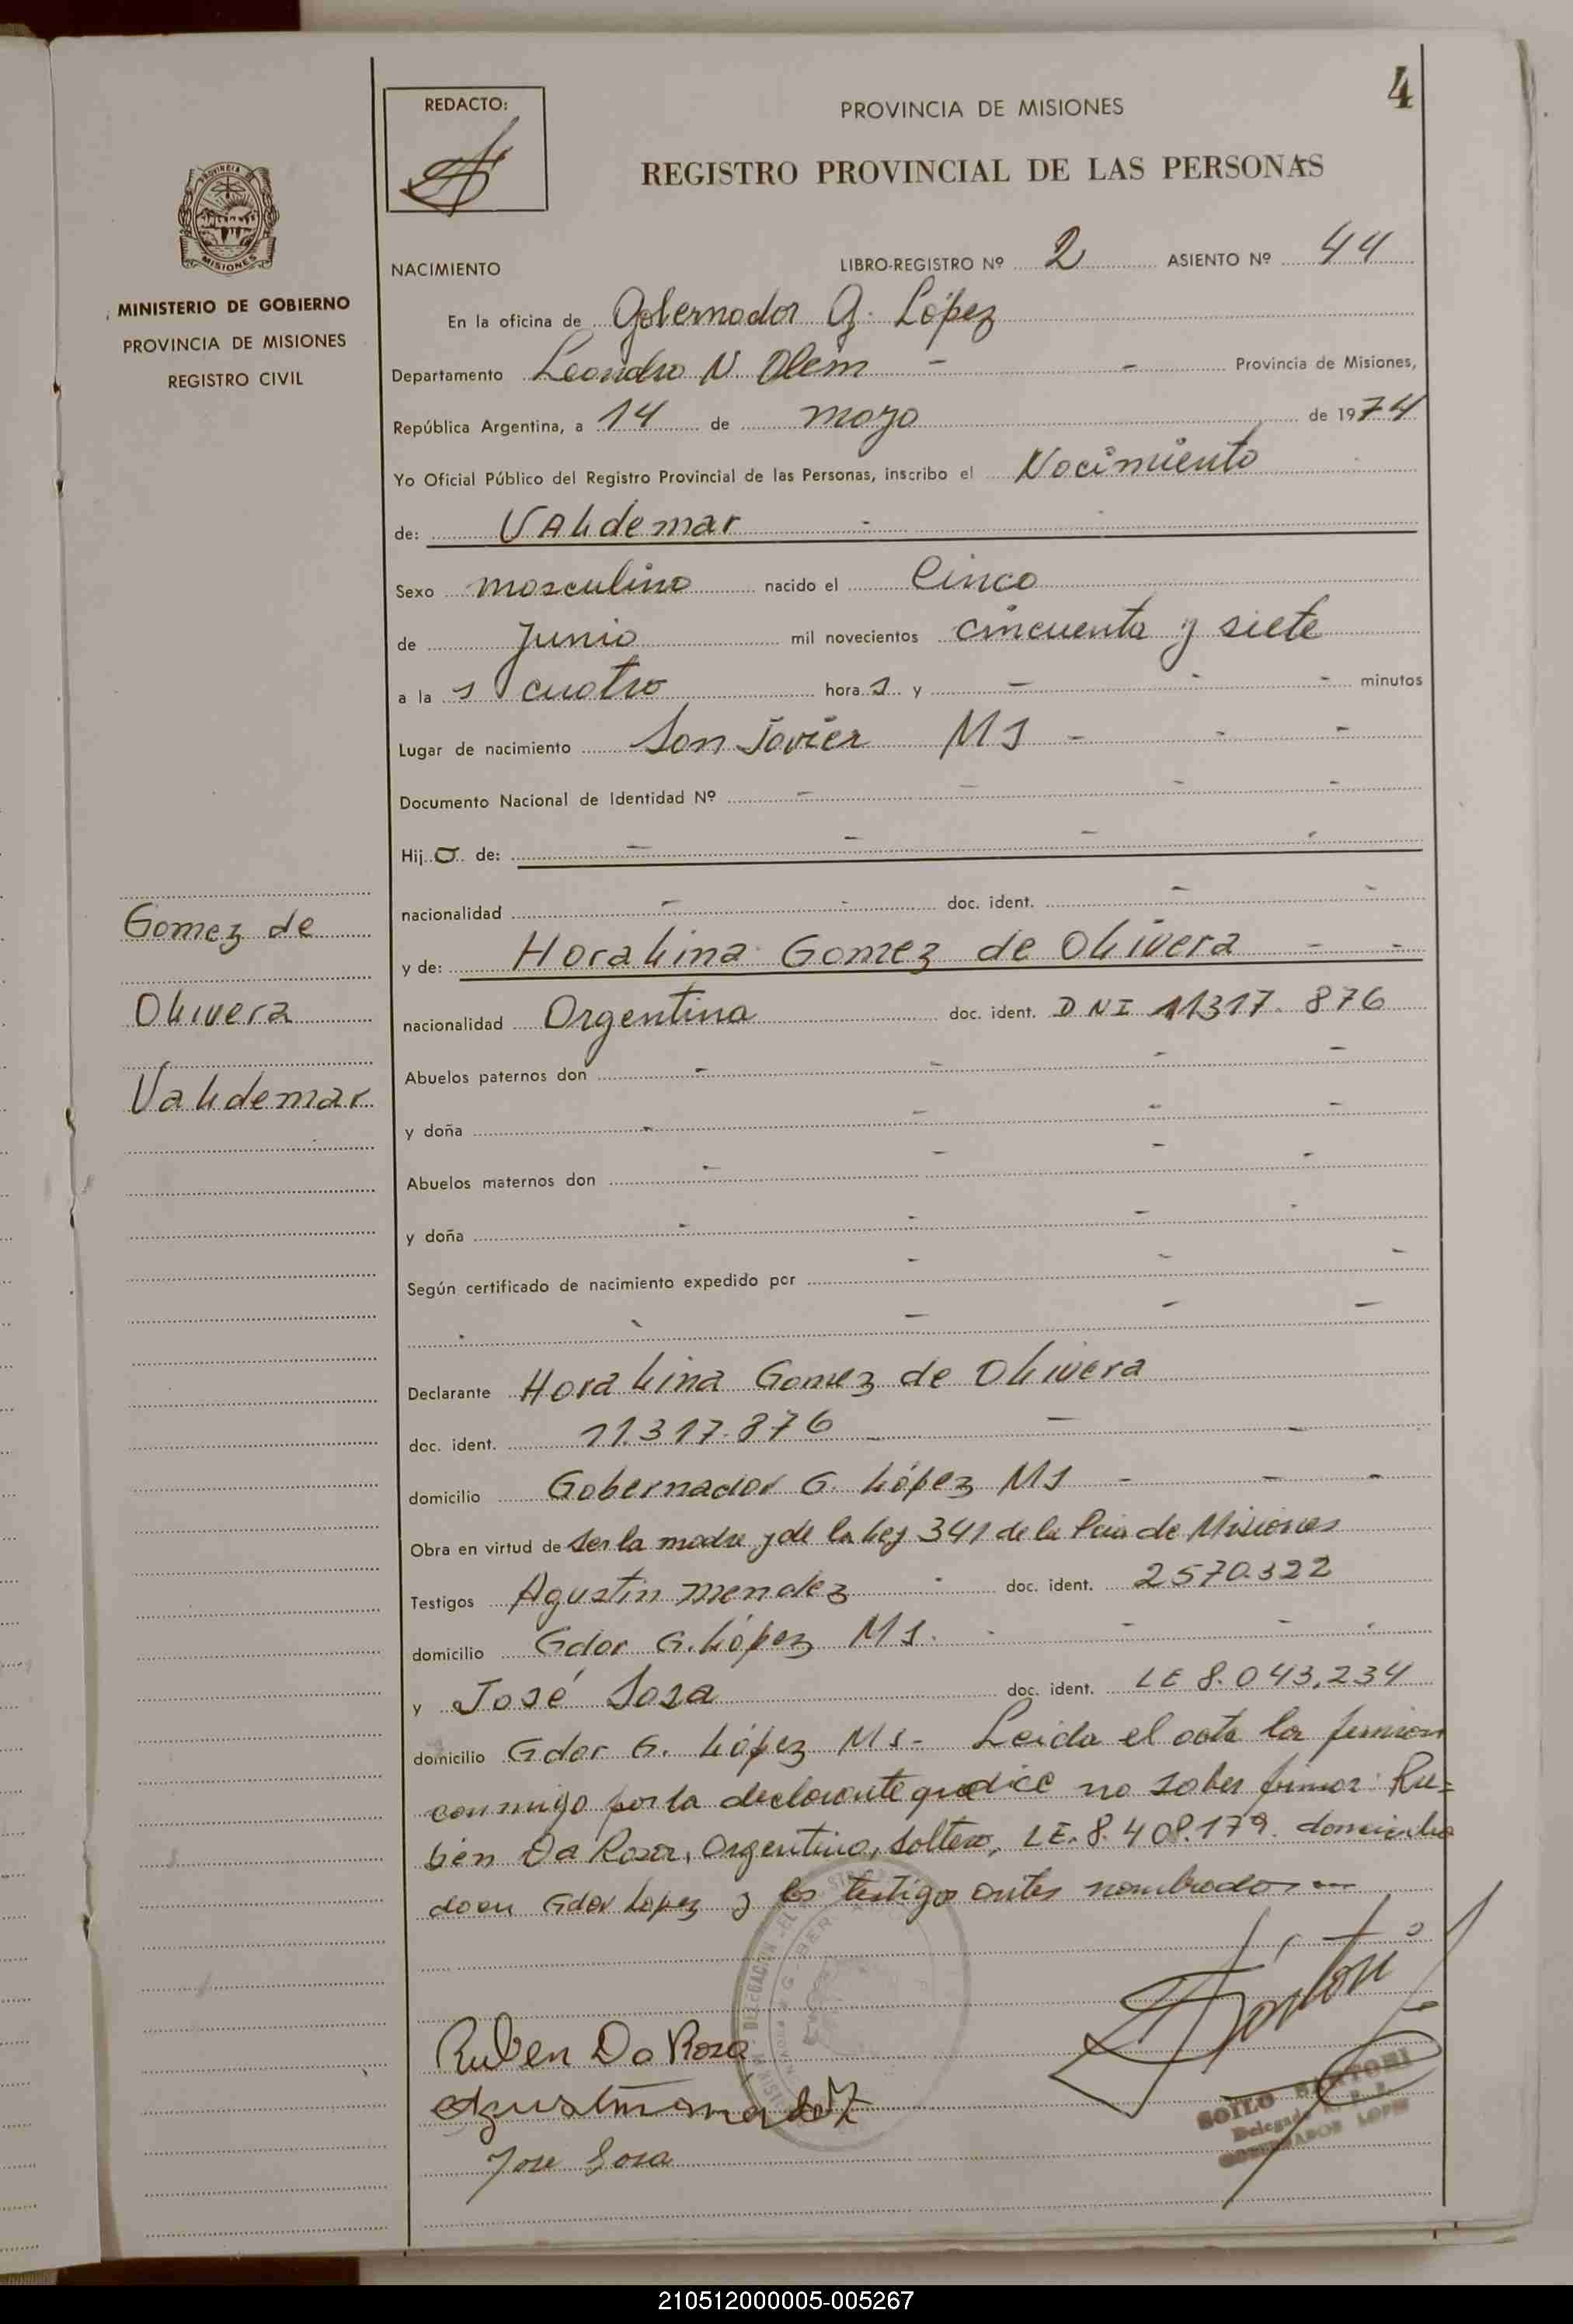 4
REDACTO:
PROVINCIA DE MISIONES
REGISTRO PROVINCIAL DE LAS PERSONAS
PROVINCIA DE
MISIONES
MINISTERIO DE GOBIERNO
PROVINCIA DE MISIONES
REGISTRO CIVIL
NACIMIENTO LIBRO-REGISTRO Nº 2 ASIENTO Nº 44
En la oficina de Gobernador G. López
Departamento Leandro N Alem - - Provincia de Misiones,
República Argentina, a 14 de mayo de 1974
Yo Oficial Público del Registro Provincial de las Personas, inscribo el Nacimiento
de: VALdemar -
Sexo masculino nacido el Cinco
de Junio mil novecientos cincuenta y siete
a la s cuatro hora s y - - - minutos
Lugar de nacimiento San Javier Ms - - -
Documento Nacional de Identidad Nº - - - -
Hij o de: - - - -
nacionalidad - - doc. ident. - -
y de: Horalina Gomez de Olivera - -
nacionalidad Argentina doc. ident. DNI 11317.876
Abuelos paternos don - - - -
y doña - - - -
Abuelos maternos don - - - -
y doña - - - -
Según certificado de nacimiento expedido por - - -
- - - - -
Declarante Horalina Gomez de Olivera
doc. ident. 11.317.876 - - -
domicilio Gobernador G. López Ms - - -
Obra en virtud de ser la madre y de la Ley 341 de la Pcia de Misiones
Testigos Agustin Mendez - doc. ident. 2570.322
domicilio Gdor G. López Ms. - - - -
y José Sosa doc. ident. LE 8.043.234
domicilio Gdor G. López Ms- Leida el acta la firman
conmigo por la declarante que dice no saber firmar: Ru=
bén Da Rosa, Argentino, soltero, LE. 8.408.179. domicilia
do en Gdor Lopez y los testigos antes nombrados
Gomez de
Olivera
Valdemar
Ruben Da Rosa
Agustin Mendez
Jose Sosa
SOILO SARTORI
Delegado
GOBERNADOR LOPEZ
210512000005-005267